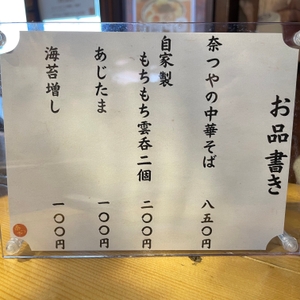 お品書き
奈つやの中華そば 八五〇円
自家製
もちもち雲呑二個 二〇〇円
あじたま 一〇〇円
海苔増し 一〇〇円